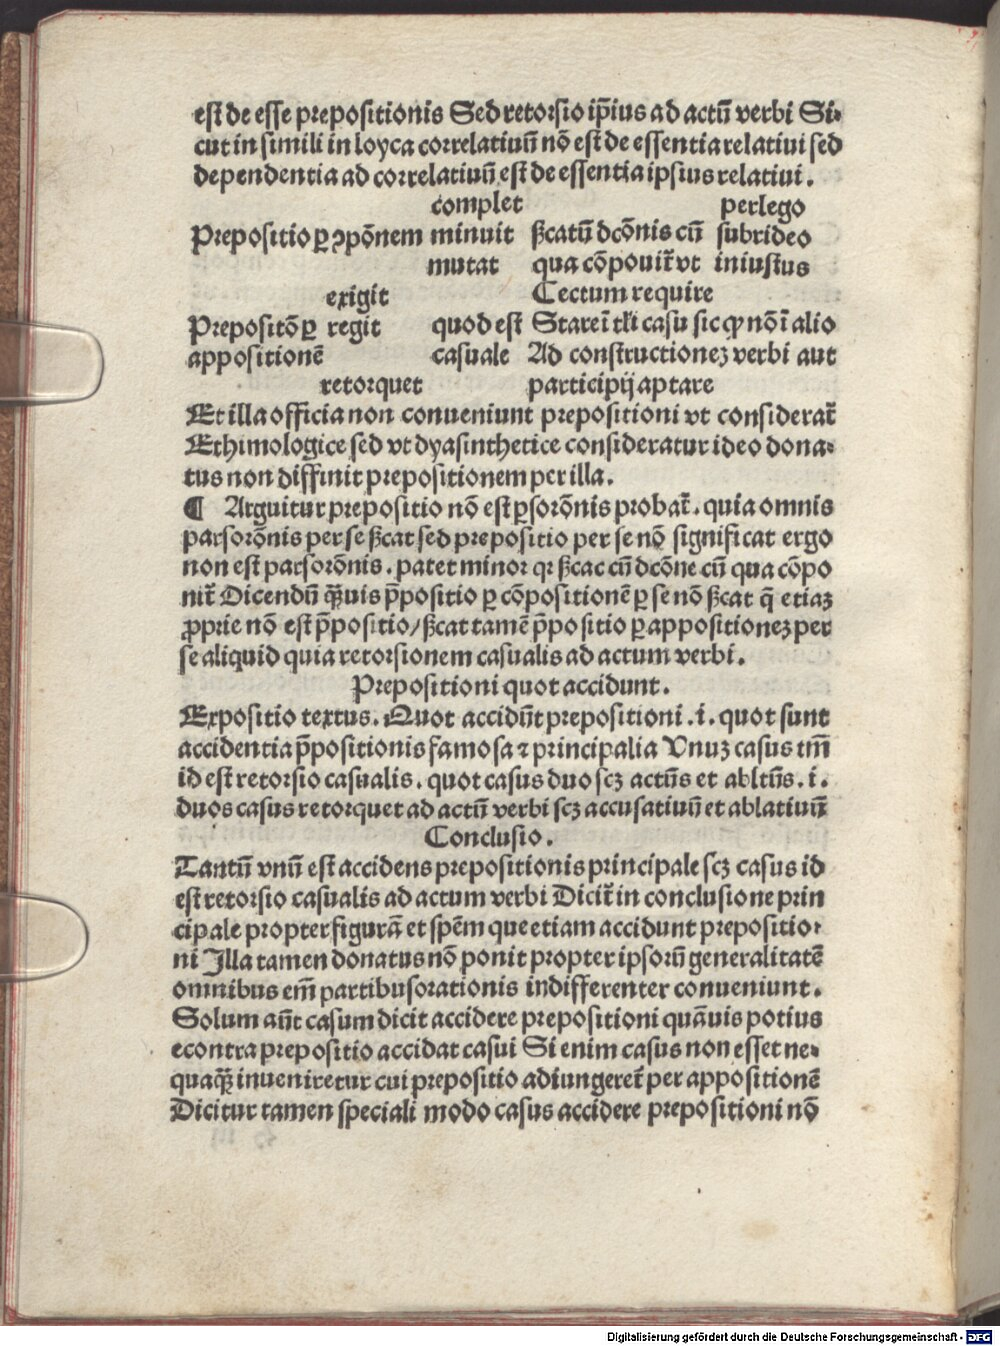 est de esse prepositionis Sed retorsio ip̄ius ad actū verbi Si-
cut in simili in loyca correlatiuū nō est de essentia relatiui sed
dependentia ad correlatiuū est de essentia ipsius relatiui.
complet perlego
Prepositio ꝑ ꝯpōnem minuit ßcatū dcōnis cū subrideo
mutat qua cōpouit̄ vt iniustus
exigit Tectum require
Prepositō ꝑ regit quod est Stareī tłi casu sic ꝙ nō ī alio
appositionē casuale Ad constructionez verbi aut
retorquet participij aptare
Et illa officia non conueniunt prepositioni vt considerat̄
Ethimologice sed vt dyasinthetice consideratur ideo dona-
tus non diffinit prepositionem per illa.
¶ Arguitur prepositio nō est ꝑsorōnis probat̄. quia omnis
parsorōnis per se ßcat sed prepositio per se nō significat ergo
non est parsorōnis. patet minor qr ßcac cū dcōne cū qua cōpo
nit̄ Dicendū qꝙuis p̄positio ꝑ cōpositionē ꝑ se nō ßcat q̄ etiaz
ꝓprie nō est p̄positio/ ßcat tamē p̄positio ꝑ appositionez per
se aliquid quia retorsionem casualis ad actum verbi.
Prepositioni quot accidunt.
Expositio textus. Quot accidūt prepositioni .i. quot sunt
accidentia p̄positionis famosa ⁊ principalia Vnuz casus tm̄
id est retorsio casualis. quot casus duo scꝫ actūs et abltūs .i.
duos casus retorquet ad actū verbi scꝫ accusatiuū et ablatiuū
Conclusio.
Tantū vnū est accidens prepositionis principale scꝫ casus id
est retorsio casualis ad actum verbi Dicit̄ in conclusione prin
cipale propter figurā et spēm que etiam accidunt prepositio-
ni Illa tamen donatus nō ponit propter ipsorū generalitatē
omnibus em̄ partibusorationis indifferenter conueniunt.
Solum aūt casum dicit accidere prepositioni quāuis potius
econtra prepositio accidat casui Si enim casus non esset ne-
quaꝙ̄ inueniretur cui prepositio adiungeret̄ per appositionē
Dicitur tamen speciali modo casus accidere prepositioni nō
Digitalisierung gefördert durch die Deutsche Forschungsgemeinschaft - DFG